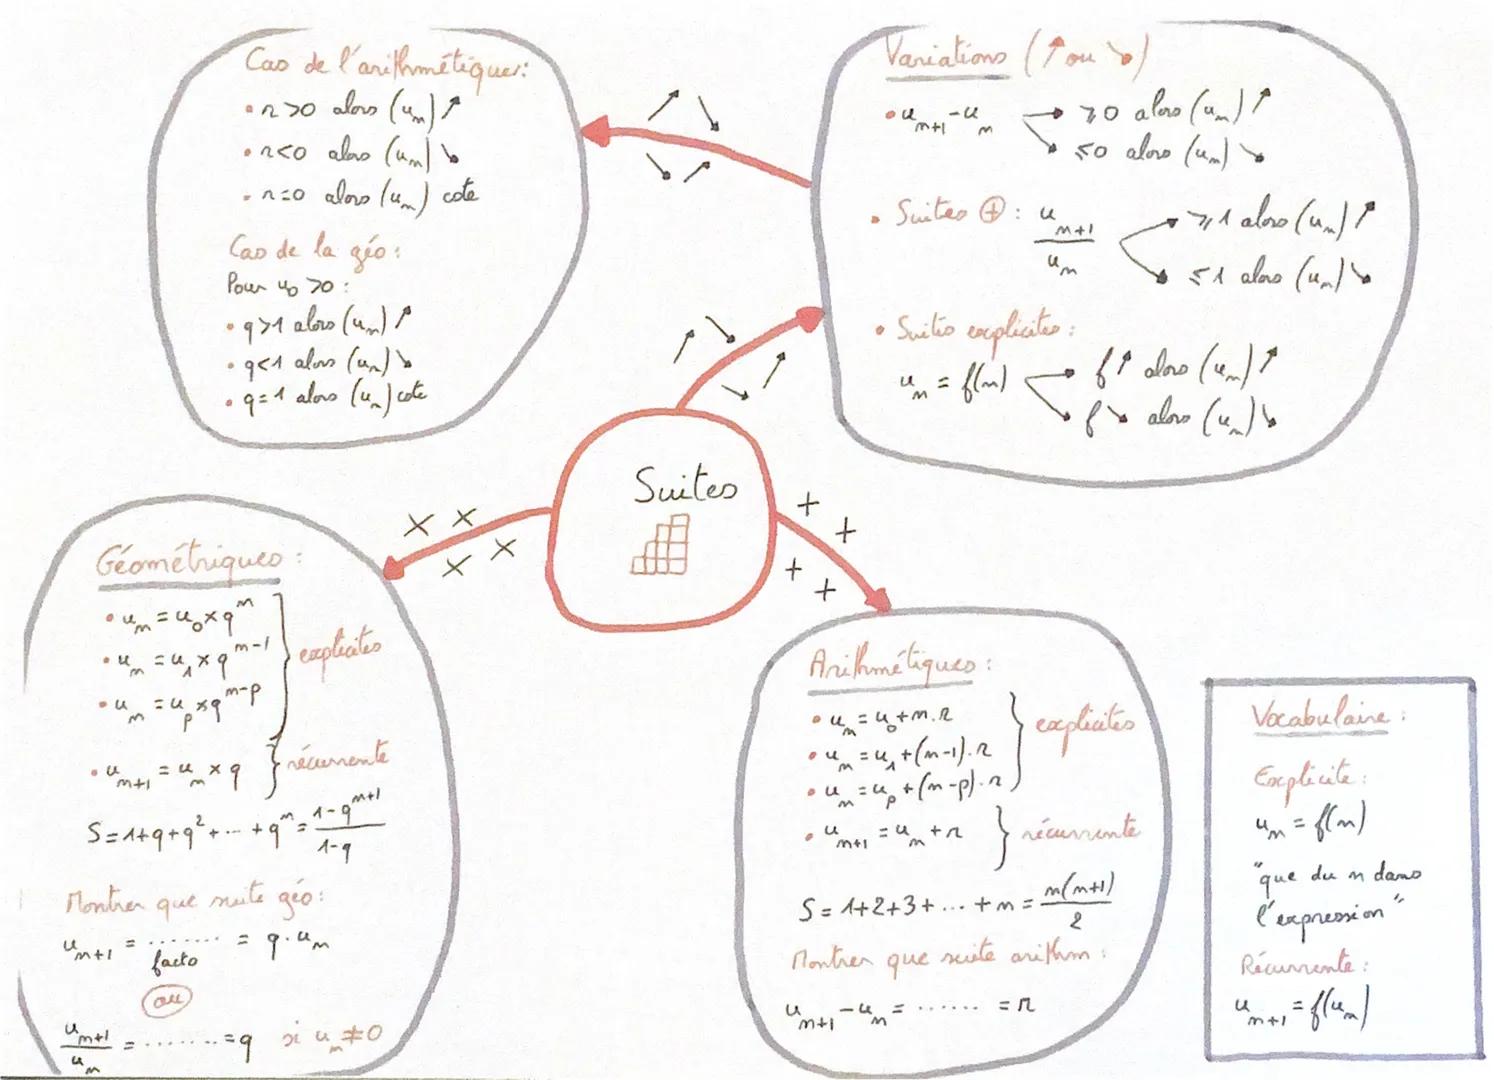 Cas de l'arithmétiques:
• r>0 alors (uₙ) ↗
• r<0 alors (uₙ) ↘
• r=0 alors (uₙ) cste
Cas de la géo :
Pour u₀ >0 :
• q>1 alors (uₙ) ↗
• q<1 alors (uₙ) ↘
• q=1 alors (uₙ) cste
Variations (↗ ou ↘)
• uₙ₊₁ - uₙ → ≥0 alors (uₙ) ↗
↘ ≤0 alors (uₙ) ↘
• Suites ⊕ : uₙ₊₁/uₙ → ≥1 alors (uₙ) ↗
↘ ≤1 alors (uₙ) ↘
• Suites explicites :
uₙ = f(n) → f↗ alors (uₙ) ↗
↘ f↘ alors (uₙ) ↘
Suites
× × × ×
+ + + +
Géométriques :
• uₙ = u₀ × qⁿ
• uₙ = u₁ × qⁿ⁻¹
• uₙ = uₚ × qⁿ⁻ᵖ
} explicites
• uₙ₊₁ = uₙ × q } récurrente
S = 1+q+q²+ ... +qⁿ = (1-qⁿ⁺¹)/(1-q)
Montrer que suite géo :
uₙ₊₁ = ....... = q.uₙ
facto
ou
uₙ₊₁/uₙ = ........ = q si uₙ ≠ 0
Arithmétiques :
• uₙ = u₀ + n.r
• uₙ = u₁ + (n-1).r
• uₙ = uₚ + (n-p).r
} explicites
• uₙ₊₁ = uₙ + r } récurrente
S = 1+2+3+ ... +n = n(n+1)/2
Montrer que suite arithm :
uₙ₊₁ - uₙ = ...... = r
Vocabulaire :
Explicite :
uₙ = f(n)
"que du n dans
l'expression"
Récurrente :
uₙ₊₁ = f(uₙ)